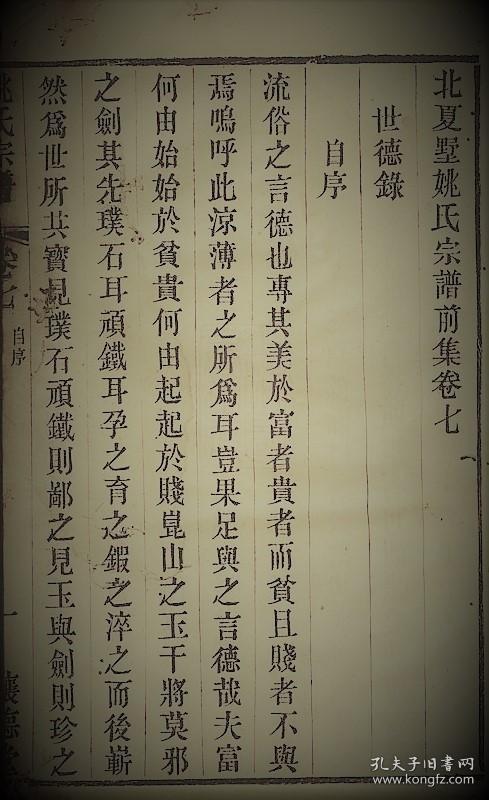 北夏墅姚氏宗譜前集卷七
世德錄
自序
流俗之言德也專其美於富者貴者而貧且賤者不與
焉嗚呼此涼薄者之所為耳豈果足與之言德哉夫富
何由始始於貧貴何由起起於賤崑山之玉干將莫邪
之劍其先璞石耳頑鐵耳孕之育之鍜之淬之而後嶄
然為世所共寶見璞石頑鐵則鄙之見玉與劍則珍之
姚氏宗譜 卷七 自序 一
孔夫子旧书网
www.kongfz.com